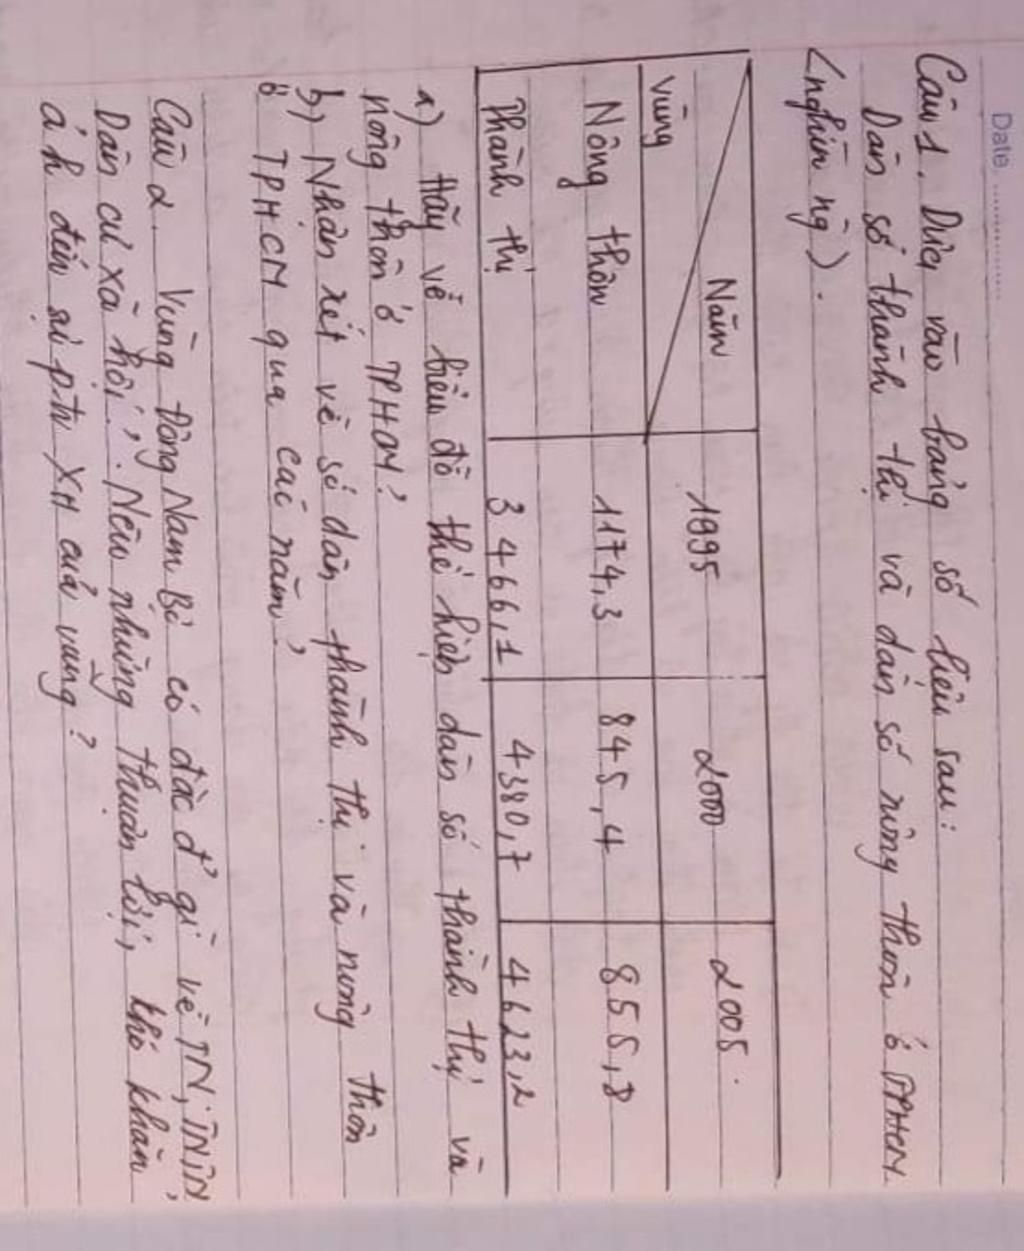 Date
Câu 1. Dựa vào bảng số liệu sau:
Dân số thành thị và dân số nông thôn ở TPHCM
(nghìn ng).
Vùng Năm 1995 2000 2005.
Nông thôn 1174,3 845,4 855,8
Thành thị 3466,1 4380,7 4623,2
a) Hãy vẽ biểu đồ thể hiện dân số thành thị và
nông thôn ở TPHCM?
b) Nhận xét về số dân thành thị và nông thôn
ở TPHCM qua các năm?
Câu 2. Vùng Đông Nam Bộ có đặc đ' gì về TN,
Dân cư xã hội?. Nêu những thuận lợi, khó khăn
á h đến sự ptr XH của vùng?